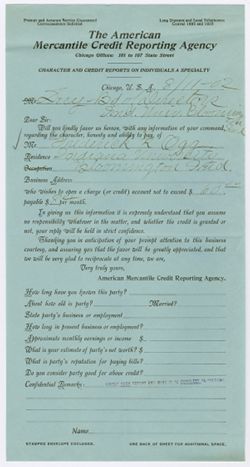 Prompt and Accurate Service Guaranteed
Correspondence Solicited
Long Distance and Local Telephones
The American
Mercantile Credit Reporting Agency
Chicago Offices: 101 to 107 State Street
CHARACTER AND CREDIT REPORTS ON INDIVIDUALS A SPECIALTY
Chicago, U. S. A.
Mr.
Dear Sir:
Will you kindly favor us, herein, with any information at your command,
regarding the character, honesty and ability to pay, of
Mr. Frederick A. Ogg
Residence Indiana University
Occupation Bloomington Ind.
Business Address
who wishes to open a charge (or credit) account not to exceed $
payable $ per month.
In giving us this information it is expressly understood that you assume
no responsibility whatever in the matter, and whether the credit is granted or
not, your reply will be held in strict confidence.
Thanking you in anticipation of your prompt attention to this business
courtesy, and assuring you that the favor will be greatly appreciated, and that
we will be very glad to reciprocate at any time, we are,
Very truly yours,
American Mercantile Credit Reporting Agency.
How long have you known this party?
About how old is party? Married?
State party's business or employment
How long in present business or employment?
Approximate monthly earnings or income $
What is your estimate of party's net worth? $
What is party's reputation for paying bills?
Do you consider party good for above credit?
Confidential Remarks:
Name
STAMPED ENVELOPE ENCLOSED. USE BACK OF SHEET FOR ADDITIONAL SPACE.